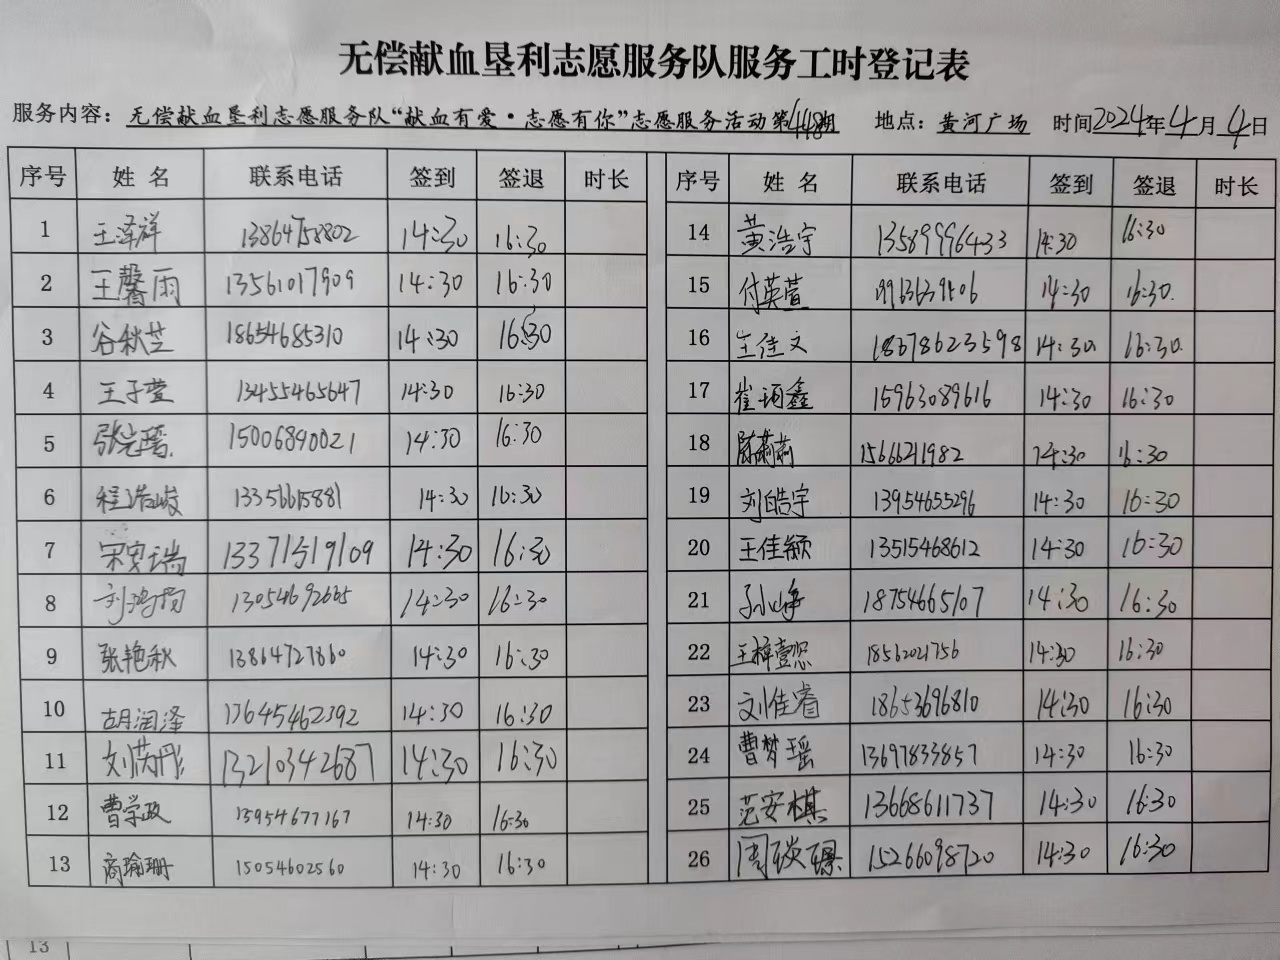 无偿献血垦利志愿服务队服务工时登记表
服务内容：无偿献血垦利志愿服务队“献血有爱·志愿有你”志愿服务活动第448期 地点：黄河广场 时间2024年4月4日
序号 姓名 联系电话 签到 签退 时长 序号 姓名 联系电话 签到 签退 时长
1 王泽祥 13864758802 14:30 16:30
2 王馨雨 13561017909 14:30 16:30
3 谷秋芝 18654685310 14:30 16:30
4 王子莹 13455465647 14:30 16:30
5 15006890021 14:30 16:30
6 程浩峻 13356615881 14:30 16:30
7 宋安瑞 13371519109 14:30 16:30
8 刘鸿扬 13054692665 14:30 16:30
9 张艳秋 13864727860 14:30 16:30
10 胡润泽 13645462392 14:30 16:30
11 刘芮彤 13210342687 14:30 16:30
12 曹学政 13954677167 14:30 16:30
13 商瑜珊 15054602560 14:30 16:30
14 黄浩宇 13589996433 14:30 16:30
15 付英萱 14:30 16:30
16 王佳文 18678623598 14:30 16:30
17 崔珂鑫 15963089616 14:30 16:30
18 陈莉莉 15666211982 14:30 16:30
19 刘皓宇 13954655296 14:30 16:30
20 王佳颖 13515468612 14:30 16:30
21 孙小峰 18754665107 14:30 16:30
22 王梓懿 18562021756 14:30 16:30
23 刘佳睿 18653696810 14:30 16:30
24 曹梦瑶 13697833857 14:30 16:30
25 范安棋 13668611737 14:30 16:30
26 周琰璟 15266098720 14:30 16:30
13